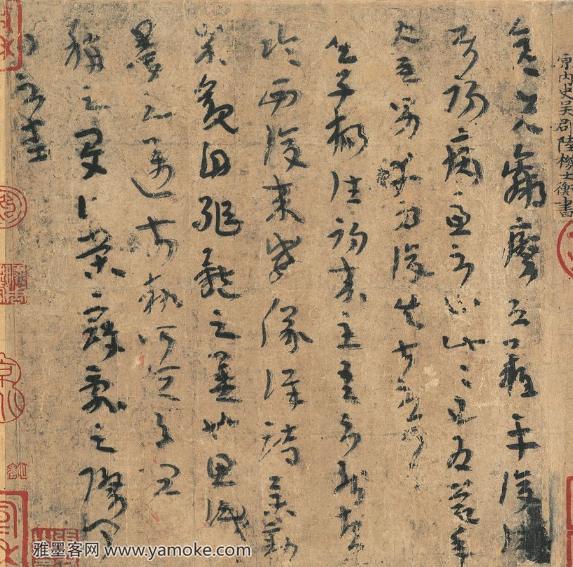 原內史吳郡陸機士衡書
彥先羸瘵恐難平復
初病慮不止此此已為慶承
使唯男幸為復失前憂耳
吳子楊往初來主吾不能盡
臨西復來威儀詳跱舉動
成觀自軀體之美也思識
量之邁前執所恒有宜
稱之夏伯榮寇亂之際聞
問不悉
雅墨客网 www.yamoke.com